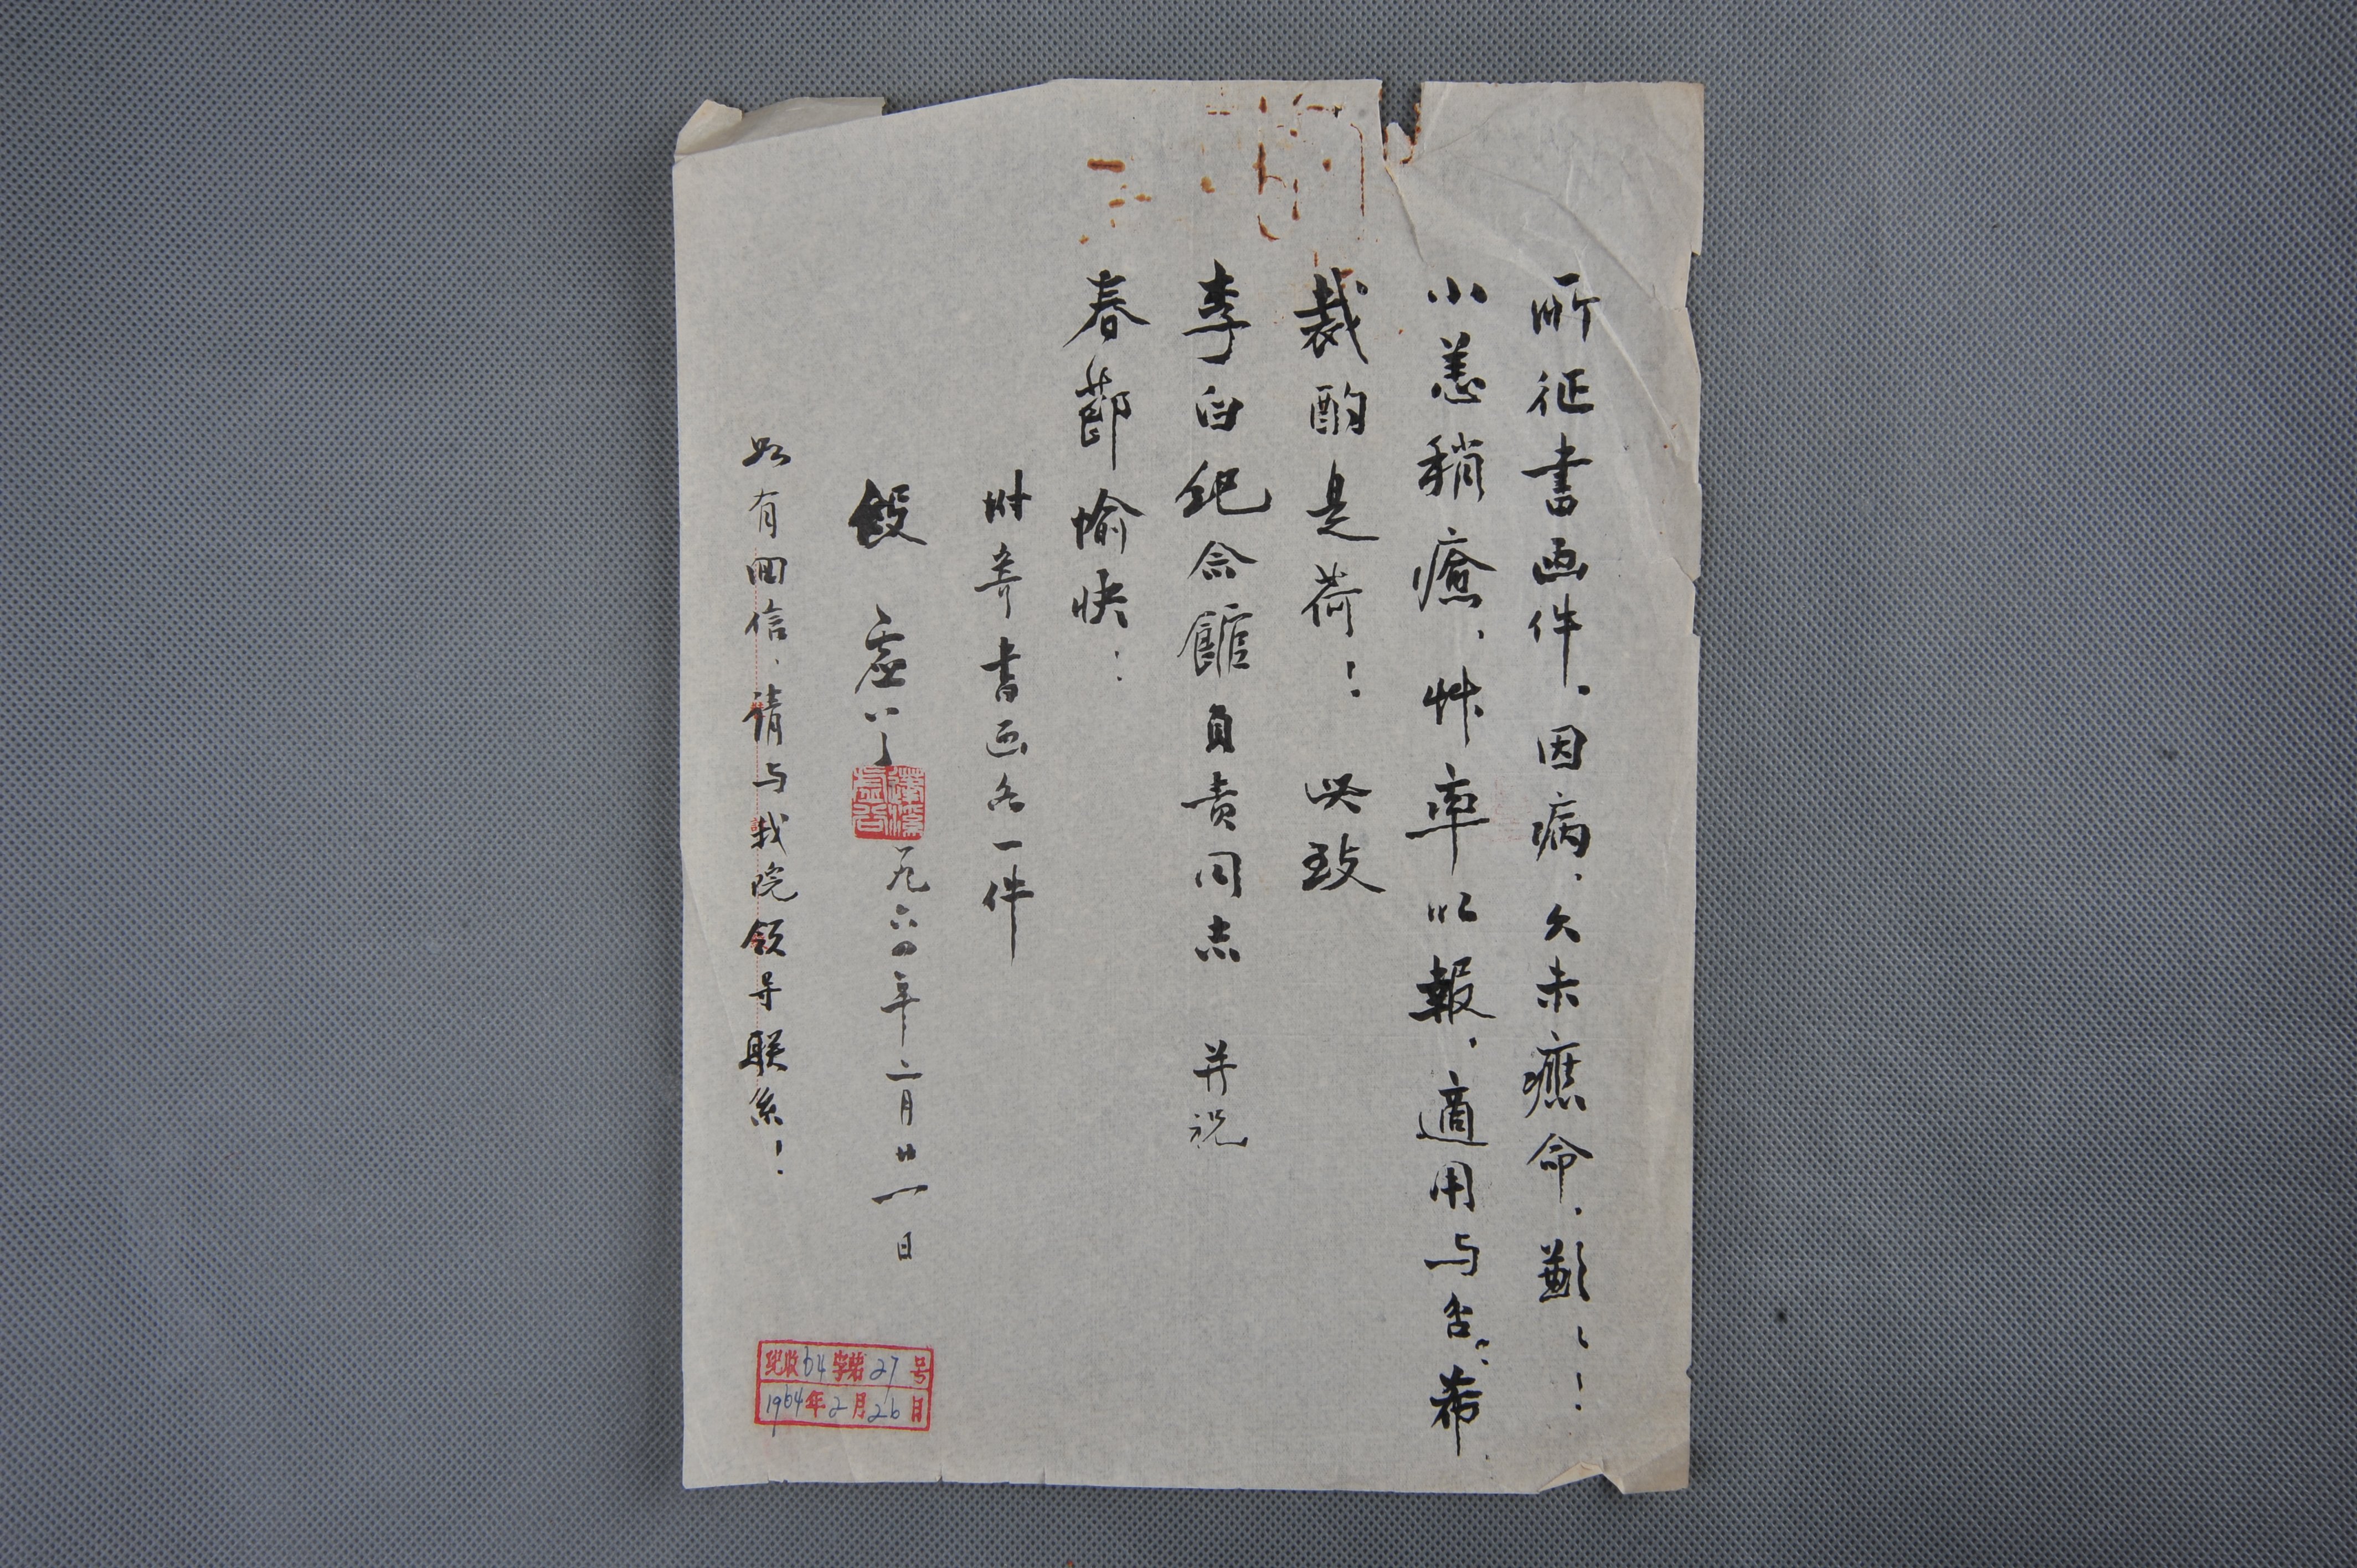 所征书画件，因病，久未應命，歉〻！
小恙稍癒，艸率以報，適用与否，希
裁酌是荷！此致
李白纪念館負责同志 并祝
春節愉快：
附寄书画各一件
段虚谷
一九六四年二月廿一日
如有回信，请与我院领导联系！
纪收64字第27号
1964年2月26日